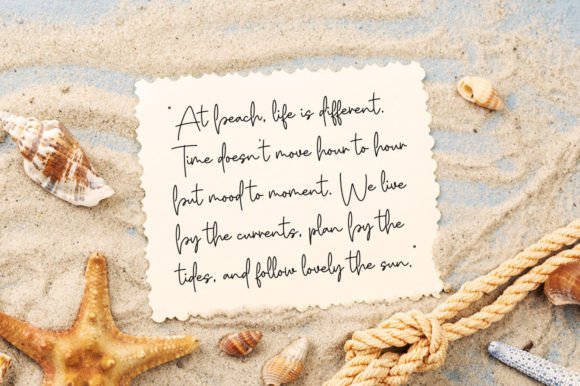 "At beach, life is different.
Time doesn't move hour to hour
but mood to moment. We live
by the currents, plan by the
tides, and follow lovely the sun."